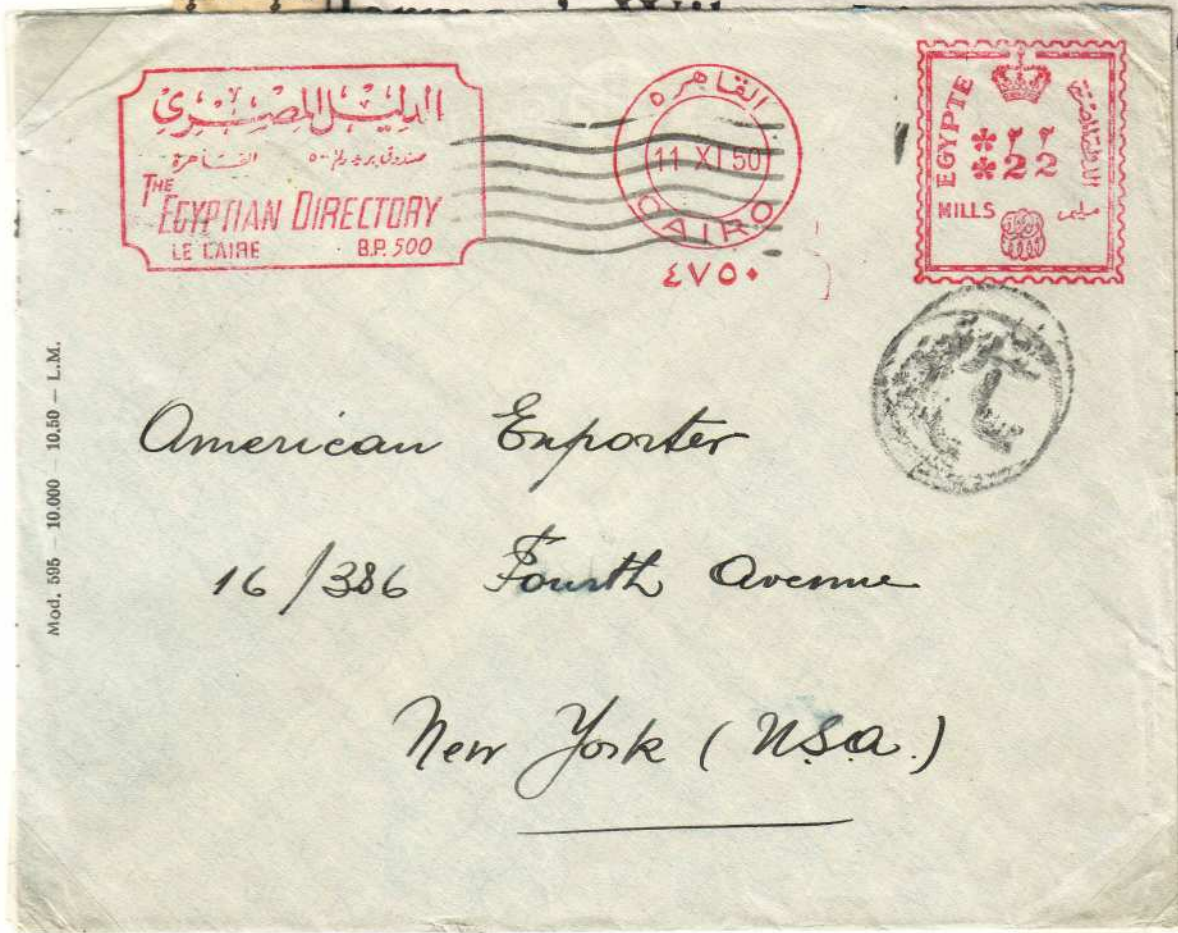 الدليل المصري
القاهرة صندوق بريد رقم ٥٠٠
THE
EGYPTIAN DIRECTORY
LE CAIRE B.P. 500
القاهره
11 XI 50
CAIRO
٤٧٥٠
EGYPTE
*٢٢
*22
MILLS مليم
Mod. 595 – 10.000 – 10.50 – L.M.
American Exporter
16/386 Fourth Avenue
New York (U.S.A.)